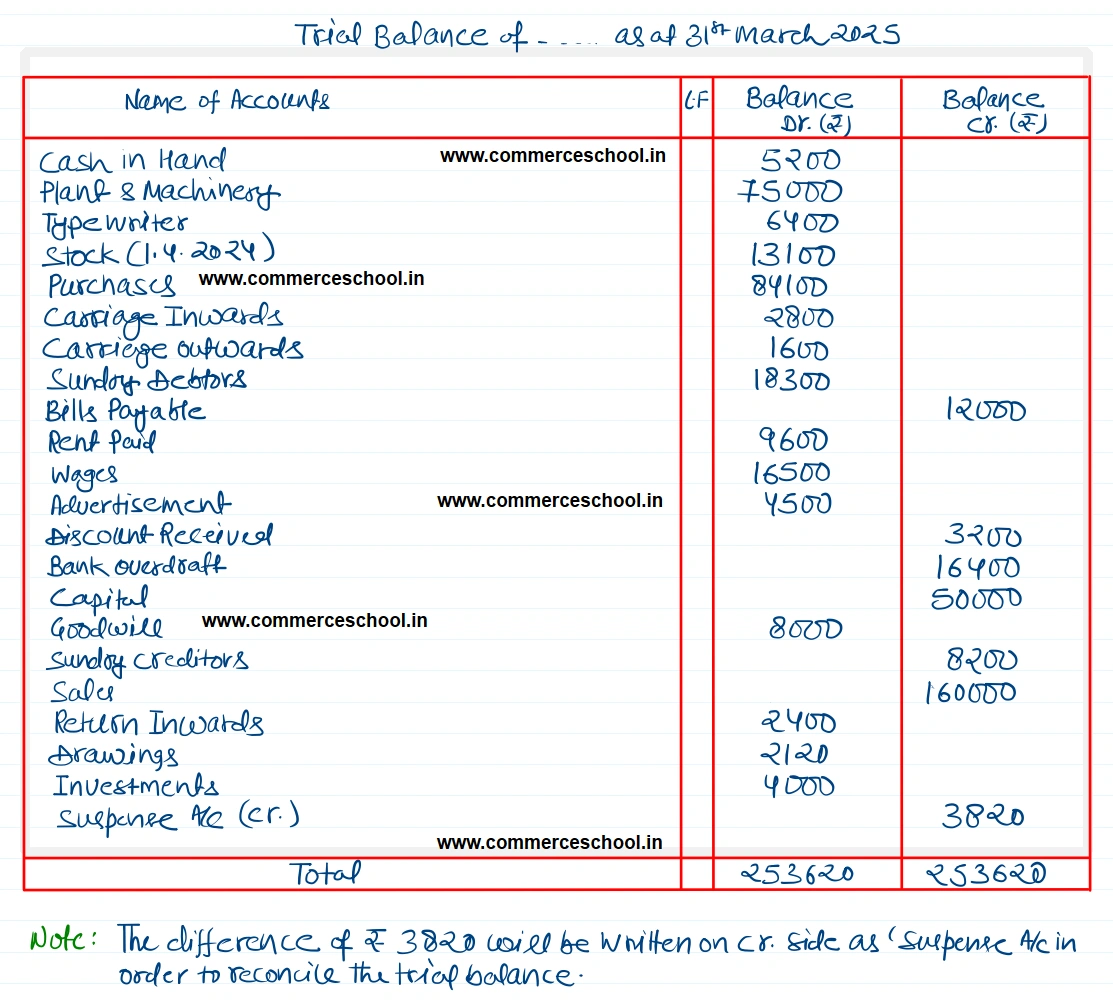 Trial Balance of - ..... as at 31st March 2025
Name of Accounts L.F Balance Dr. (₹) Balance Cr. (₹)
Cash in Hand www.commerceschool.in 5200
Plant & Machinery 75000
Typewriter 6400
Stock (1.4.2024) 13100
Purchases www.commerceschool.in 84100
Carriage Inwards 2800
Carriage outwards 1600
Sundry Debtors 18300
Bills Payable 12000
Rent Paid 9600
Wages 16500
Advertisement www.commerceschool.in 4500
Discount Received 3200
Bank overdraft 16400
Capital 50000
Goodwill www.commerceschool.in 8000
Sundry creditors 8200
Sales 160000
Return Inwards 2400
Drawings 2120
Investments 4000
Suspense A/c (cr.) 3820
www.commerceschool.in
Total 253620 253620
Note: The difference of ₹ 3820 will be written on cr. side as 'Suspense A/c in
order to reconcile the trial balance.